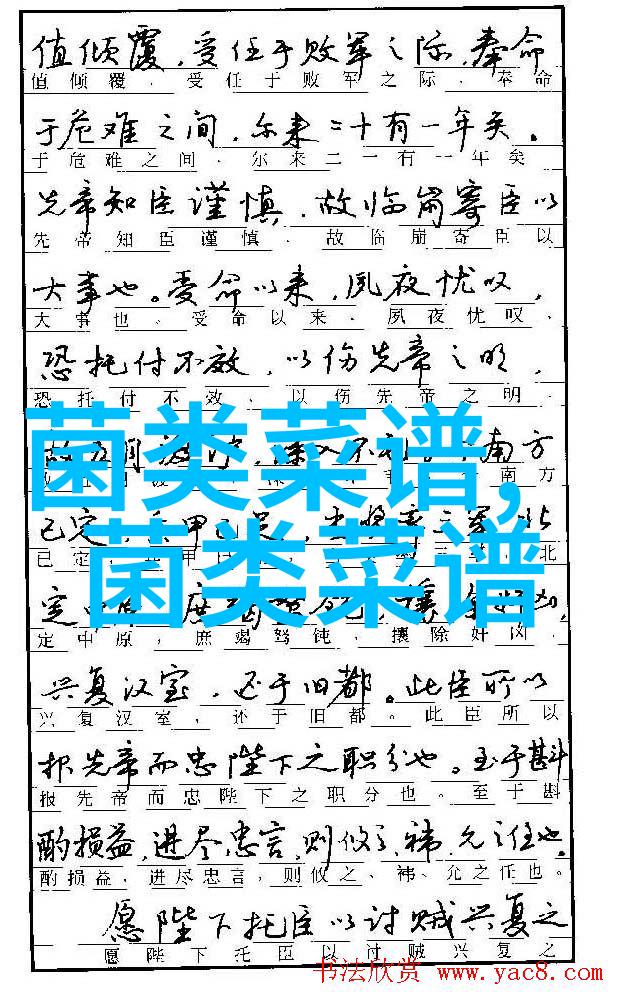 值倾覆,受任于败军之际,奉命
值倾覆,受任于败军之际,奉命
于危难之间,尔来二十有一年矣。
于危难之间,尔来二一有一年矣
先帝知臣谨慎,故临崩寄臣以
先帝知臣谨慎,故临崩寄臣以
大事也。受命以来,夙夜忧叹,
大事也。受命以来,夙夜忧叹,
恐托付不效,以伤先帝之明,
恐托付不效,以伤先帝之明,
菌类菜谱,
故五月渡泸,深入不 南方
南方
菌类菜谱
已定,兵甲已足,当 三军,北
已定, 甲 北
定中原,庶竭驽钝,攘除奸凶,
定中原,庶竭驽钝,攘除奸凶,
兴复汉室,还于旧都。此臣所以
兴复汉室,还于旧都。此臣所以
报先帝而忠陛下之职分也。至于斟
报先帝而忠陛下之职分也。至于斟
酌损益,进尽忠言,则攸之、祎、允之任也。
酌损益,进尽忠言,则攸之、祎、允之任也。
愿陛下托臣以讨贼兴复之
愿陛下托臣以讨贼兴复之
书法欣赏 www.yac8.com